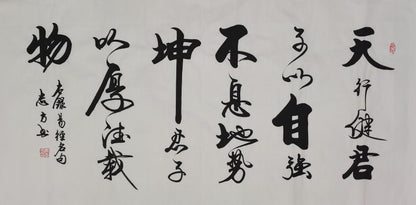 天行健君
子以自強
不息地勢
坤君子
以厚德載
物
書錄易經名句